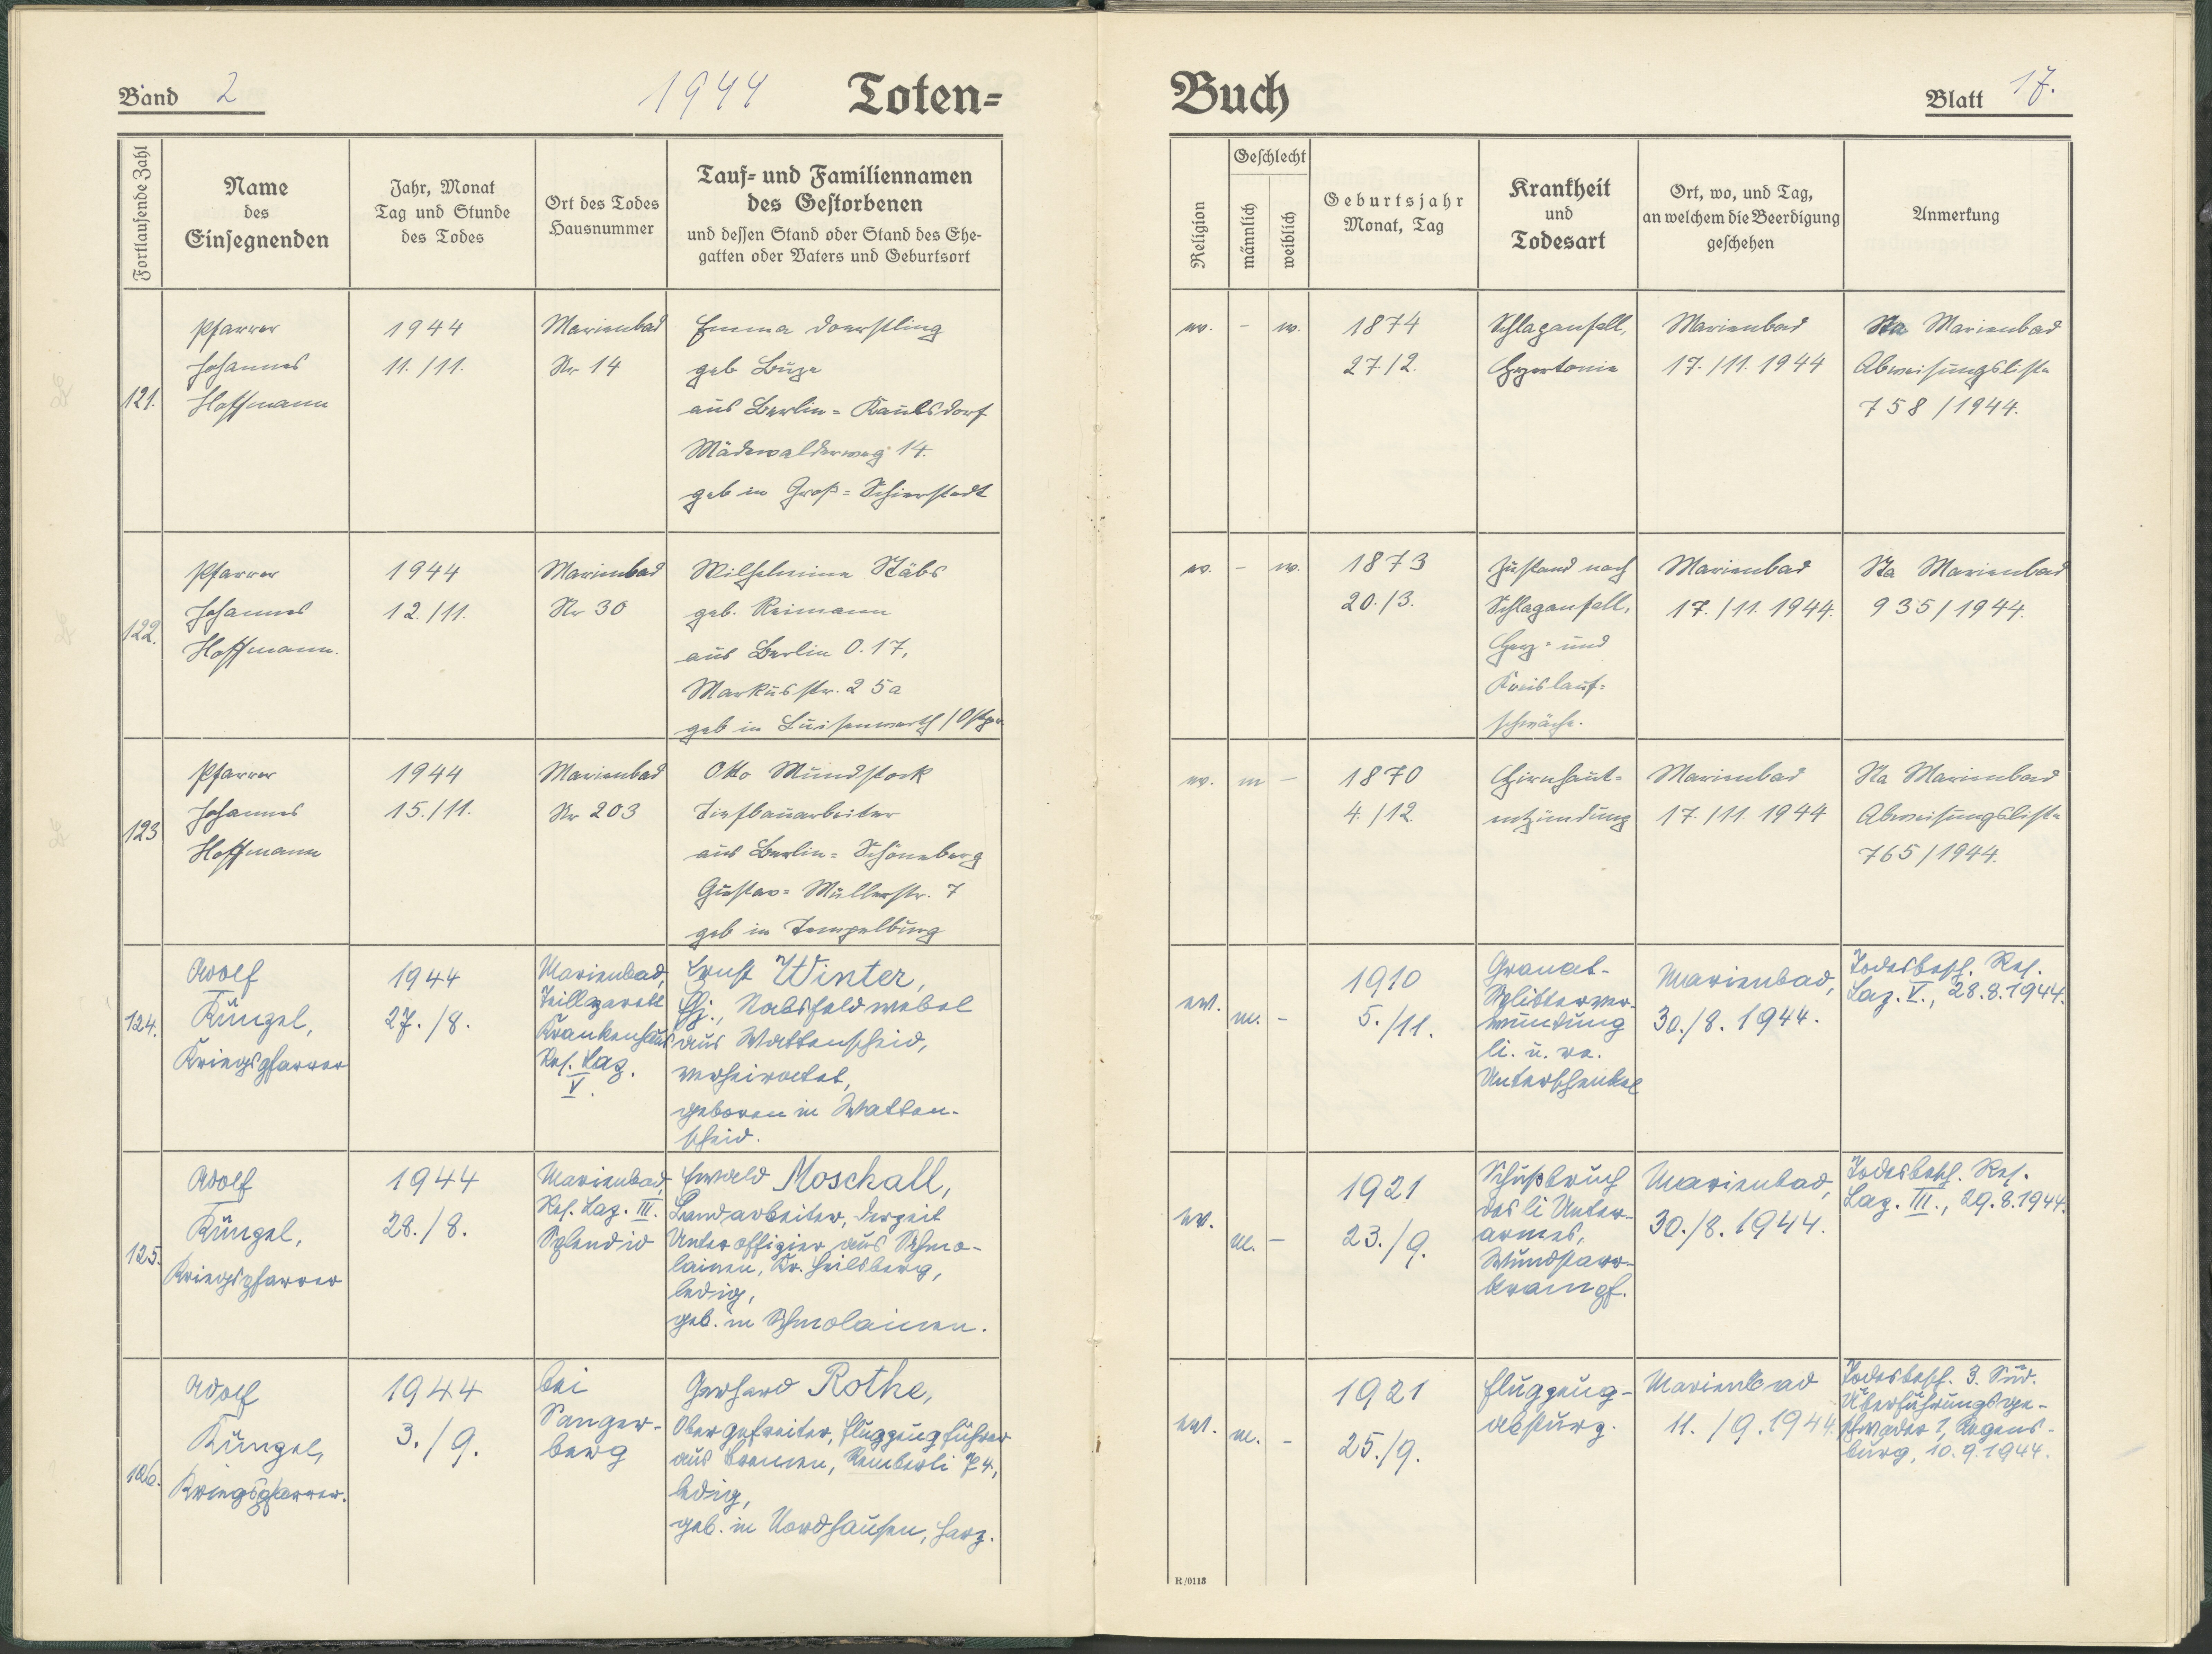 Band 2
1944 Toten=
Fortlaufende Zahl
Name
des
Einsegnenden
Jahr, Monat
Tag und Stunde
des Todes
Ort des Todes
Hausnummer
Tauf= und Familiennamen
des Gestorbenen
und dessen Stand oder Stand des Ehe-
gatten oder Vaters und Geburtsort
121.
Pfarrer
Johannes
Hoffmann
1944
11./11.
Marienbad
Nr 14
Emma Doerstling
geb
aus Berlin=Kaulsdorf
Mädewalderweg 14.
geb in Groß=Schierstedt
122.
Pfarrer
Johannes
Hoffmann.
1944
12./11.
Marienbad
Nr 30
Wilhelmine Stäbs
geb. Reimann
aus Berlin O.17,
Markusstr. 25a
geb in Luisenwerth/Ostpr.
123
Pfarrer
Johannes
Hoffmann
1944
15./11.
Marienbad
Nr 203
Otto Mundstock
Tiefbauarbeiter
aus Berlin=Schöneberg
Gustav=Müllerstr. 7
geb in Tempelburg
124.
Adolf
Küngel,
Kriegspfarrer
1944
27./8.
Marienbad,
Teillazarett
Krankenhaus
Res. Laz.
V.
Ernst Winter,
Stabsfeldwebel
aus Wattenscheid,
verheiratet,
geboren in Watten-
scheid.
125.
Adolf
Küngel,
Kriegspfarrer
1944
28./8.
Marienbad,
Res. Laz. III.
Splendid
Ewald Moschall,
Landarbeiter, derzeit
Unteroffizier aus Schmo-
lainen, Kr. Heilsberg,
ledig,
geb. in Schmolainen.
126.
Adolf
Küngel,
Kriegspfarrer.
1944
3./9.
bei
Sanger-
berg
Gerhard Rothe,
Obergefreiter, Flugzeugführer
aus Bremen, 74,
ledig,
geb. in Nordhausen, Harz.
Buch
Blatt 17.
Religion
Geschlecht
männlich
weiblich
Geburtsjahr
Monat, Tag
Krankheit
und
Todesart
Ort, wo, und Tag,
an welchem die Beerdigung
geschehen
Anmerkung
ev.
–
w.
1874
27./2.
Schlaganfall,
Hypertonie
Marienbad
17./11. 1944
Sta Marienbad
Abweisungsliste
758/1944.
ev.
–
w.
1873
20./3.
Zustand nach
Schlaganfall,
Herz= und
Kreislauf=
schwäche.
Marienbad
17./11. 1944.
Sta Marienbad
935/1944.
ev.
m
–
1870
4./12.
Hirnhaut=
entzündung
Marienbad
17./11. 1944
Sta Marienbad
Abweisungsliste
765/1944.
ev.
m.
–
1910
5./11.
Granat-
Splitterver-
wundung
li. u. re.
Unterschenkel
Marienbad,
30./8. 1944.
Todesbesch. Res.
Laz. V., 28.8.1944.
ev.
m.
–
1921
23./9.
Schußbruch
des li Unter-
armes,
Wundstarr-
krampf.
Marienbad,
30./8. 1944.
Todesbesch. Res.
Laz. III., 29.8.1944.
ev.
m.
–
1921
25./9.
Flugzeug-
absturz.
Marienbad
11./9.1944.
Todesbesch. 3. Süd.
Überführungsge-
schwader 1, Regens-
burg, 10.9.1944.
R/0113